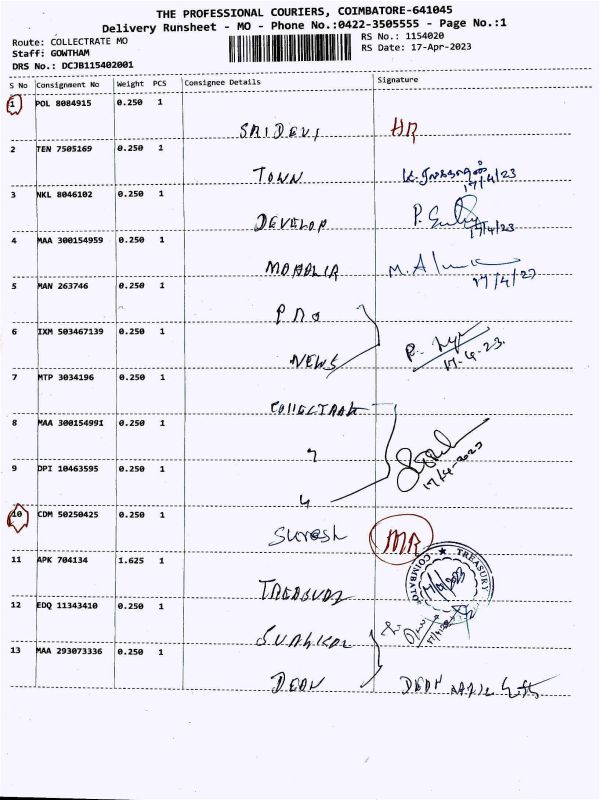 THE PROFESSIONAL COURIERS, COIMBATORE-641045
Delivery Runsheet - MO - Phone No.:0422-3505555 - Page No.:1
Route: COLLECTRATE MO
RS No.: 1154020
Staff: GOWTHAM
RS Date: 17-Apr-2023
DRS No.: DCJB115402001
S No Consignment No Weight PCS Consignee Details Signature
1 POL 8084915 0.250 1
SRIDEVI HR
2 TEN 7505169 0.250 1
TOWN
17/4/23
3 NKL 8046102 0.250 1
DEVELOP
17/4/23
4 MAA 300154959 0.250 1
17/4/23
5 MAN 263746 0.250 1
6 IXM 503467139 0.250 1
NEWS
17-4-23.
7 MTP 3034196 0.250 1
8 MAA 300154991 0.250 1
9 DPI 10463595 0.250 1
17/4-2023
10 CDM 50250425 0.250 1
Suresh MR
11 APK 704134 1.625 1
TREASURY
COIMBATO
12 EDQ 11343410 0.250 1
13 MAA 293073336 0.250 1
DEAN DEAN